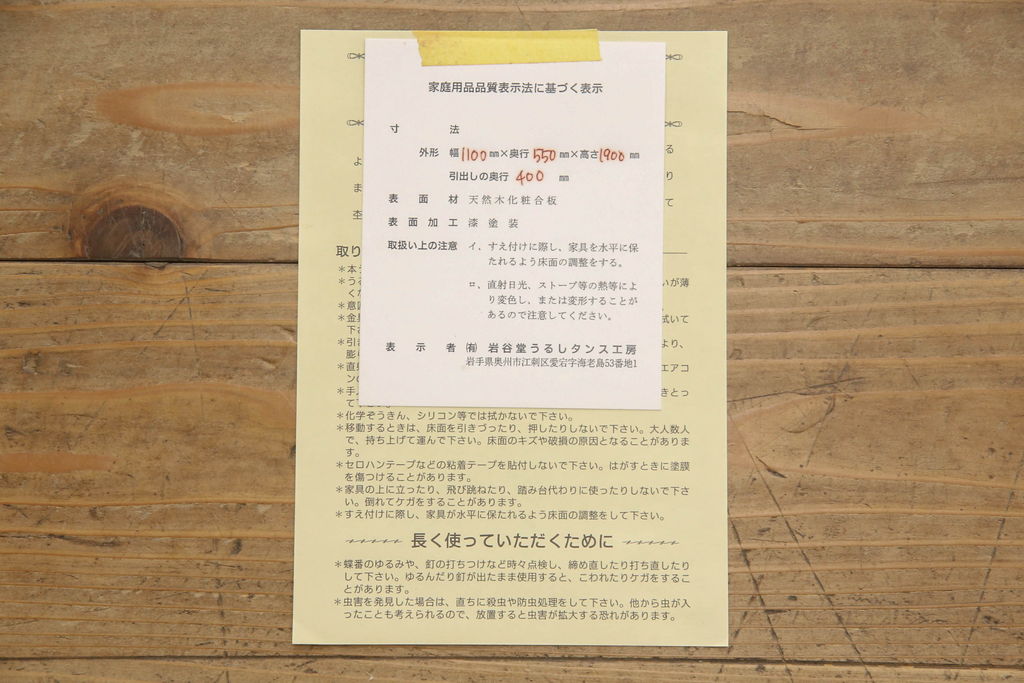 家庭用品品質表示法に基づく表示
寸 法
外形 幅1100㎜×奥行550㎜×高さ1900㎜
引出しの奥行 400 ㎜
表面材 天然木化粧合板
表面加工 漆塗装
取扱い上の注意 イ、すえ付けに際し、家具を水平に保
たれるよう床面の調整をする。
ロ、直射日光、ストーブ等の熱等によ
り変色し、または変形することが
あるので注意してください。
表示者 ㈲ 岩谷堂うるしタンス工房
岩手県奥州市江刺区愛宕字海老島53番地1
る
よ
ま り
て
取り
＊本
＊うる いが薄
く
＊意
＊金具 拭いて
下さ
＊引き より、
膨
＊直射 エアコ
ンの
＊手 きとっ
て
＊化学ぞうきん、シリコン等では拭かないで下さい。
＊移動するときは、床面を引きづったり、押したりしないで下さい。大人数人
で、持ち上げて運んで下さい。床面のキズや破損の原因となることがありま
す。
＊セロハンテープなどの粘着テープを貼付しないで下さい。はがすときに塗膜
を傷つけることがあります。
＊家具の上に立ったり、飛び跳ねたり、踏み台代わりに使ったりしないで下さ
い。倒れてケガをすることがあります。
＊すえ付けに際し、家具が水平に保たれるよう床面の調整をして下さい。
長く使っていただくために
＊蝶番のゆるみや、釘の打ちつけなど時々点検し、締め直したり打ち直したり
して下さい。ゆるんだり釘が出たまま使用すると、こわれたりケガをするこ
とがあります。
＊虫害を発見した場合は、直ちに殺虫や防虫処理をして下さい。他から虫が入
ったことも考えられるので、放置すると虫害が拡大する恐れがあります。